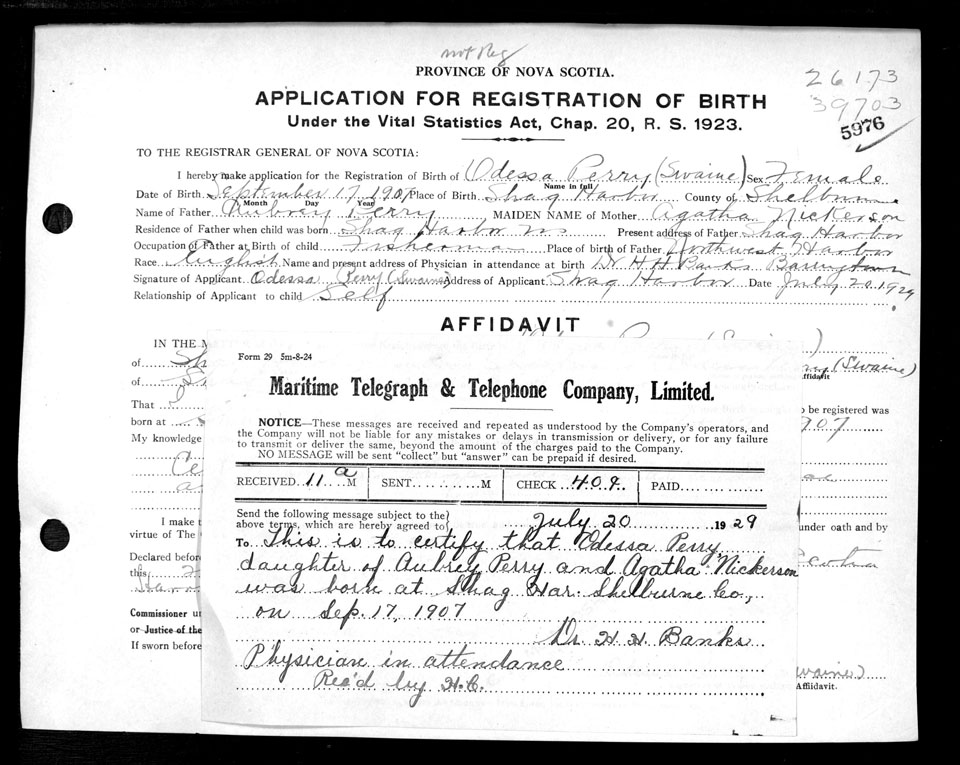 not Reg
PROVINCE OF NOVA SCOTIA.
26173
39703
5976
APPLICATION FOR REGISTRATION OF BIRTH
Under the Vital Statistics Act, Chap. 20, R. S. 1923.
TO THE REGISTRAR GENERAL OF NOVA SCOTIA:
I hereby make application for the Registration of Birth of Odessa Perry (Swaine) Sex Female
Name in full
Date of Birth September 17, 1907 Place of Birth Shag Harbor County of Shelburne
Month Day Year
Name of Father Aubrey Perry MAIDEN NAME of Mother Agatha Nickerson
Residence of Father when child was born Shag Harbor NS Present address of Father Shag Harbor
Occupation of Father at Birth of child Fisherman Place of birth of Father Northwest Harbor
Race English Name and present address of Physician in attendance at birth Dr H H Banks Barrington
Signature of Applicant Odessa Perry (Swaine) Address of Applicant Shag Harbor Date July 20 1929
Relationship of Applicant to child Self
AFFIDAVIT
IN THE
of
of
ffidavit (Swaine)
That
to be registered was
born at
907
My knowledge
I make
under oath and by
virtue of The
Declared before
this
Commissioner
or Justice of the
If sworn before
Affidavit.
Form 29 5m-8-24
Maritime Telegraph & Telephone Company, Limited.
NOTICE—These messages are received and repeated as understood by the Company's operators, and
the Company will not be liable for any mistakes or delays in transmission or delivery, or for any failure
to transmit or deliver the same, beyond the amount of the charges paid to the Company.
NO MESSAGE will be sent "collect" but "answer" can be prepaid if desired.
RECEIVED 11 a M SENT M CHECK 40¢ PAID
Send the following message subject to the
above terms, which are hereby agreed to July 20 1929
To This is to certify that Odessa Perry
daughter of Aubrey Perry and Agatha Nickerson
was born at Shag Har. Shelburne Co.,
on Sep. 17, 1907
Dr. H. H. Banks
Physician in attendance
Rec'd by H.C.